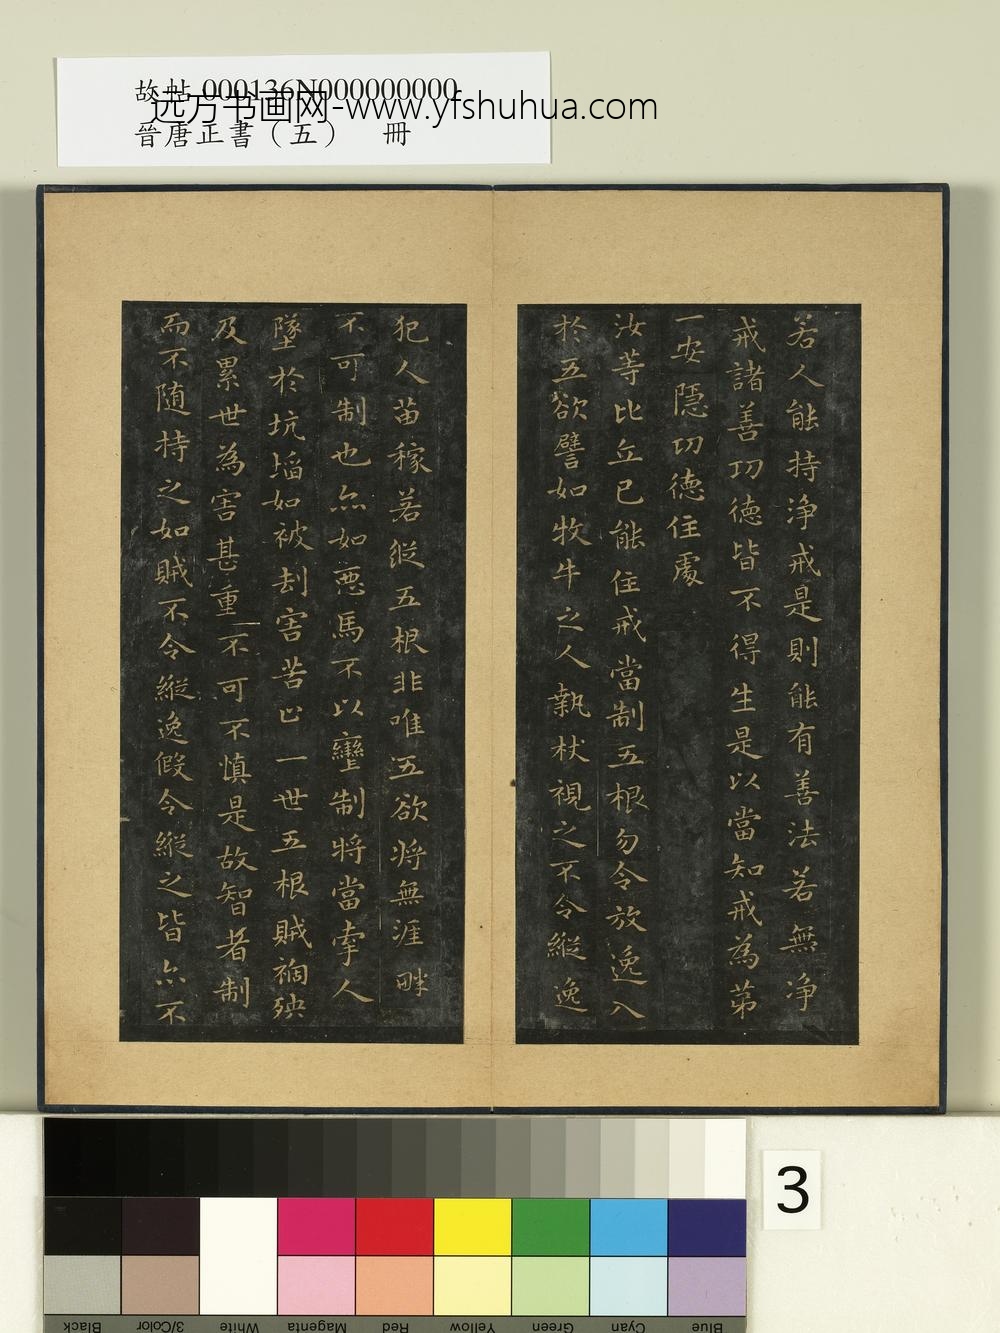 故帖 000136N000000000
远方书画网-www.yfshuhua.com
晉唐正書（五）　冊
若人能持淨戒是則能有善法若無淨
戒諸善功德皆不得生是以當知戒為第
一安隱功德住處
汝等比丘已能住戒當制五根勿令放逸入
於五欲譬如牧牛之人執杖視之不令縱逸
犯人苗稼若縱五根非唯五欲將無涯畔
不可制也亦如惡馬不以轡制將當牽人
墜於坑埳如被劫害苦止一世五根賊禍殃
及累世為害甚重不可不慎是故智者制
而不隨持之如賊不令縱逸假令縱之皆亦不
3
Black 3/Color White Magenta Red Yellow Green Cyan Blue